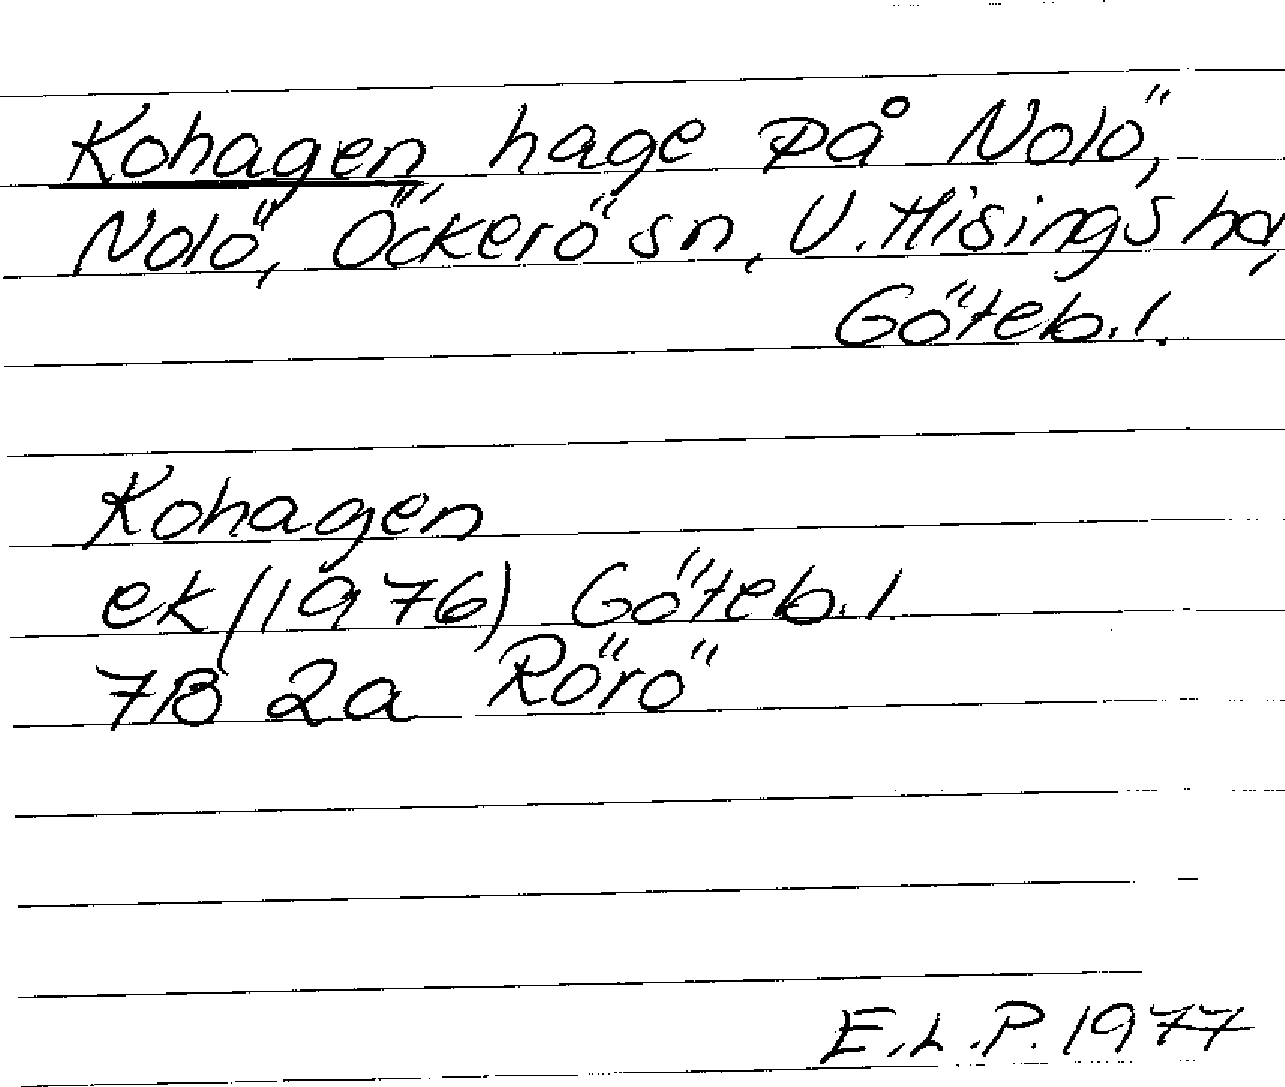 Kohagen, hage på Nolö,
Nolö, Öckerö sn, V. Hisings hd,
Göteb. l.
Kohagen
ek (1976) Göteb. l.
7B 2a Rörö
E.L.P. 1977